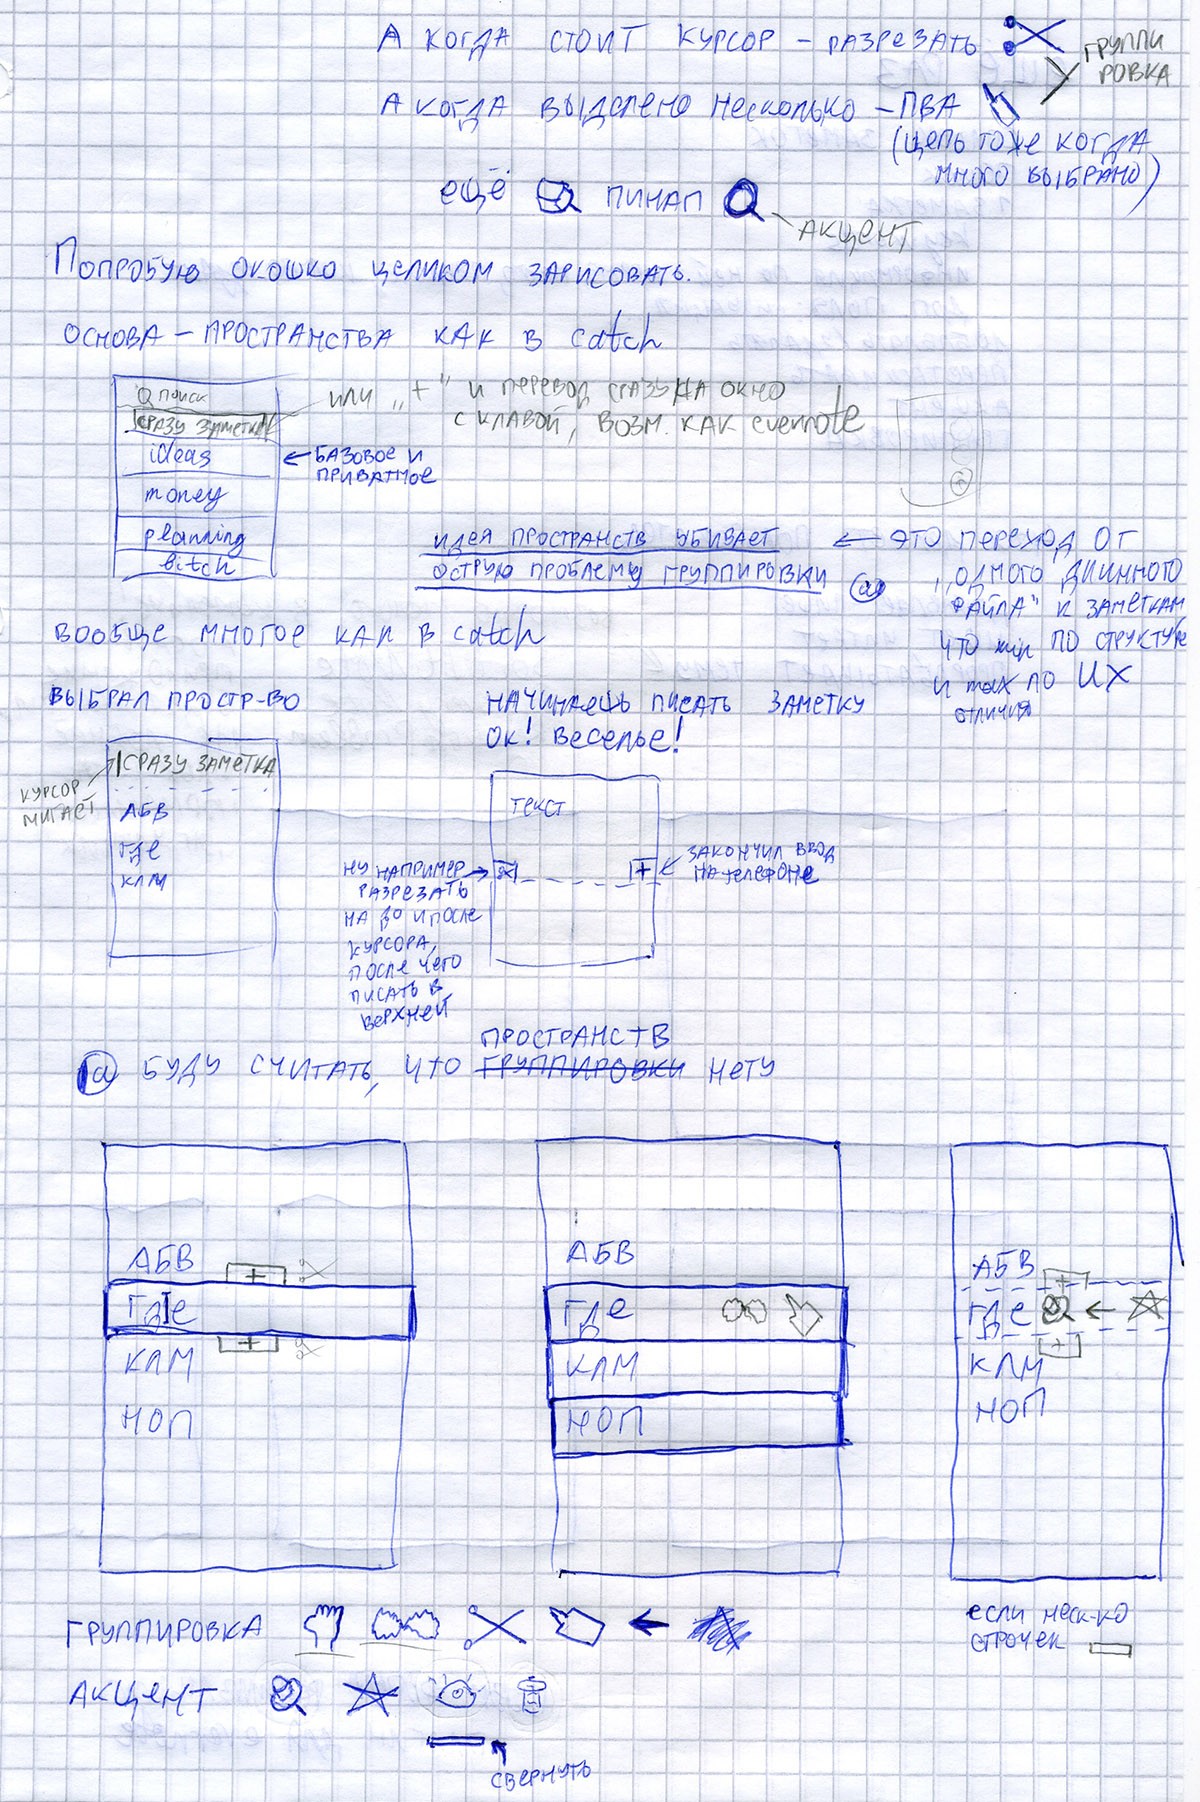 А КОГДА СТОИТ КУРСОР – РАЗРЕЗАТЬ
ГРУППИ
РОВКА
А КОГДА ВЫДЕЛЕНО НЕСКОЛЬКО – ПВА
(ЦЕПЬ ТОЖЕ КОГДА
МНОГО ВЫБРАНО)
ЕЩЁ ПИНАП
АКЦЕНТ
ПОПРОБУЮ ОКОШКО ЦЕЛИКОМ ЗАРИСОВАТЬ.
ОСНОВА – ПРОСТРАНСТВА КАК В catch
ПОИСК
СРАЗУ ЗАМЕТКА
ideas
money
planning
bitch
ИЛИ „+" И ПЕРЕВОД СРАЗУ НА ОКНО
С КЛАВОЙ, ВОЗМ. КАК evernote
+
БАЗОВОЕ И
ПРИВАТНОЕ
ИДЕЯ ПРОСТРАНСТВ УБИВАЕТ
ОСТРУЮ ПРОБЛЕМУ ГРУППИРОВКИ @
ЭТО ПЕРЕХОД ОТ
„ОДНОГО ДЛИННОГО
ФАЙЛА" К ЗАМЕТКАМ
ЧТО ПО СТРУКТУРЕ
И ПО ИХ
ОТЛИЧИЯ
ВООБЩЕ МНОГОЕ КАК В catch
ВЫБРАЛ ПРОСТР-ВО
СРАЗУ ЗАМЕТКА
КУРСОР
МИГАЕТ
АБВ
ГДЕ
КЛМ
НАЧИНАЕШЬ ПИСАТЬ ЗАМЕТКУ
ОК! ВЕСЕЛЬЕ!
ТЕКСТ
+
ЗАКОНЧИЛ ВВОД
НА ТЕЛЕФОНЕ
НУ НАПРИМЕР
РАЗРЕЗАТЬ
НА ДО И ПОСЛЕ
КУРСОРА,
ПОСЛЕ ЧЕГО
ПИСАТЬ В
ВЕРХНЕЙ
ПРОСТРАНСТВ
@ БУДУ СЧИТАТЬ, ЧТО ГРУППИРОВКИ НЕТУ
АБВ
+
ГДЕ
+
КЛМ
НОП
АБВ
ГДЕ
КЛМ
НОП
АБВ
+
ГДЕ
+
КЛМ
НОП
ГРУППИРОВКА
ЕСЛИ НЕСК-КО
СТРОЧЕК
АКЦЕНТ
СВЕРНУТЬ